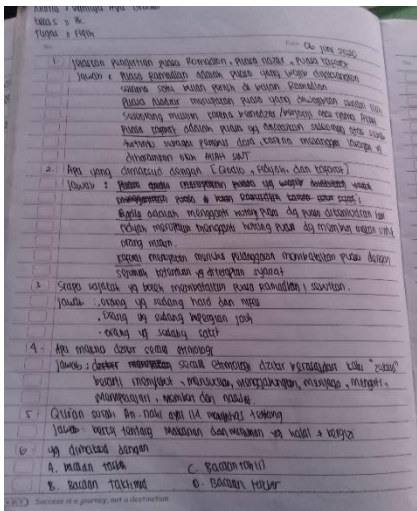 Kelas : 8c
Tugas : Fiqih
Date 06 juni 2020
1. Jelaskan Pengertian Puasa Romadlon, Puasa nazar, Puasa kafarat
Jawab : Puasa Ramadlan adalah Puasa yang wajib dilaksanakan
selama satu bulan penuh di bulan Romadlan
Puasa Nadzar merupakan puasa yang diwajibkan sendiri oleh
seorang muslim karena bernadzar/berjanji atas nama Allah
Puasa kafarat adalah puasa yg dilakukan seseorang atas suatu
dosa, karena melanggar larangan yg
diharamkan oleh Allah SWT
2. Apa yang dimaksud dengan [Qodlo, Fidyah, dan kafarat]
Jawab :
Qodlo adalah mengganti hutang Puasa dg puasa
Fidyah merupakan mengganti hutang Puasa dg memberi makan untuk
orang miskin.
kafarat merupakan menebus pelanggaran membatalkan puasa dengan
sejumlah ketentuan yg ditetapkan syariat
3. Siapa sajakah yg boleh membatalkan Puasa Ramadlan, sebutkan.
Jawab : . orang yg sedang haid dan nifas
. Orang yg sedang bepergian jauh
. orang yg sedang sakit
4. Apa makna dzikir secara etimologi
Jawab : secara etimologi dzikir berasal dari kata
berarti menyebut, mensucikan, menggabungkan, menjaga, mengerti,
mempelajari, memberi dan nasihat.
5. Qur'an surah An-nahl ayat 114 membahas tentang
Jawab : berisi tentang makanan dan minuman yg halal + bergizi
6. yg dimaksud dengan
A. bacaan tasbih C. Bacaan tahlil
B. Bacaan takhmid D. Bacaan takbir
Success is a journey, not a destination